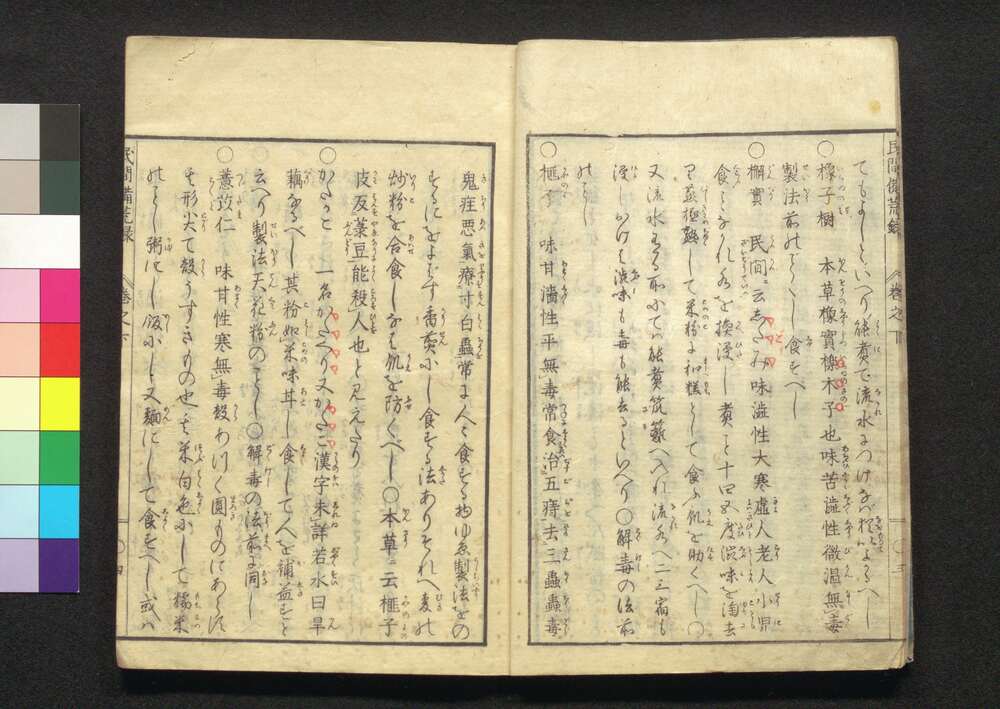 民間備荒録 巻之下 三
てもよしといへり能煑て流水につけなば極てよかるべし
〇橡子樹 本草橡實櫟木子也味苦澁性微温無毒
製法前のごとくし食すべし
〇槲實 民間云志だみ味澁性大寒虚人老人小児
食ふなかれ水を換浸し煮こと十四五度澁味を淘去
り蒸極熟して米粉に和糕として食ふ飢を助くべし〇
又流水ある所にては能煑筑籔へ入れ流水へ二三宿も
浸しおけば渋味も毒も能去るといへり〇解毒の法前
のごとし
〇榧子 味甘濇性平無毒常食治五痔去三蟲蠱毒
鬼疰悪氣療寸白蟲常に人々食するものゆゑ製法をの
するにをよばず香煎にし食する法ありそれへ麦の
炒粉を合食しなば飢を防ぐべし〇本草云榧子
皮反菉豆能殺人也と見えたり
〇かたかこ 一名かたくり又かたこ漢字未詳若水曰旱
藕なるべし其粉如米味甘し食して人を補益すと
云へり製法天花粉のごとし〇解毒の法前に同し
〇薏苡仁 味甘性寒無毒殻あつく圓ものにあらず
其形尖て殻うすきもの也其米白色にして糯米
のごとし粥にし飯にし又麺にして食すべし或ハ
民間備荒録 巻之下 〇四